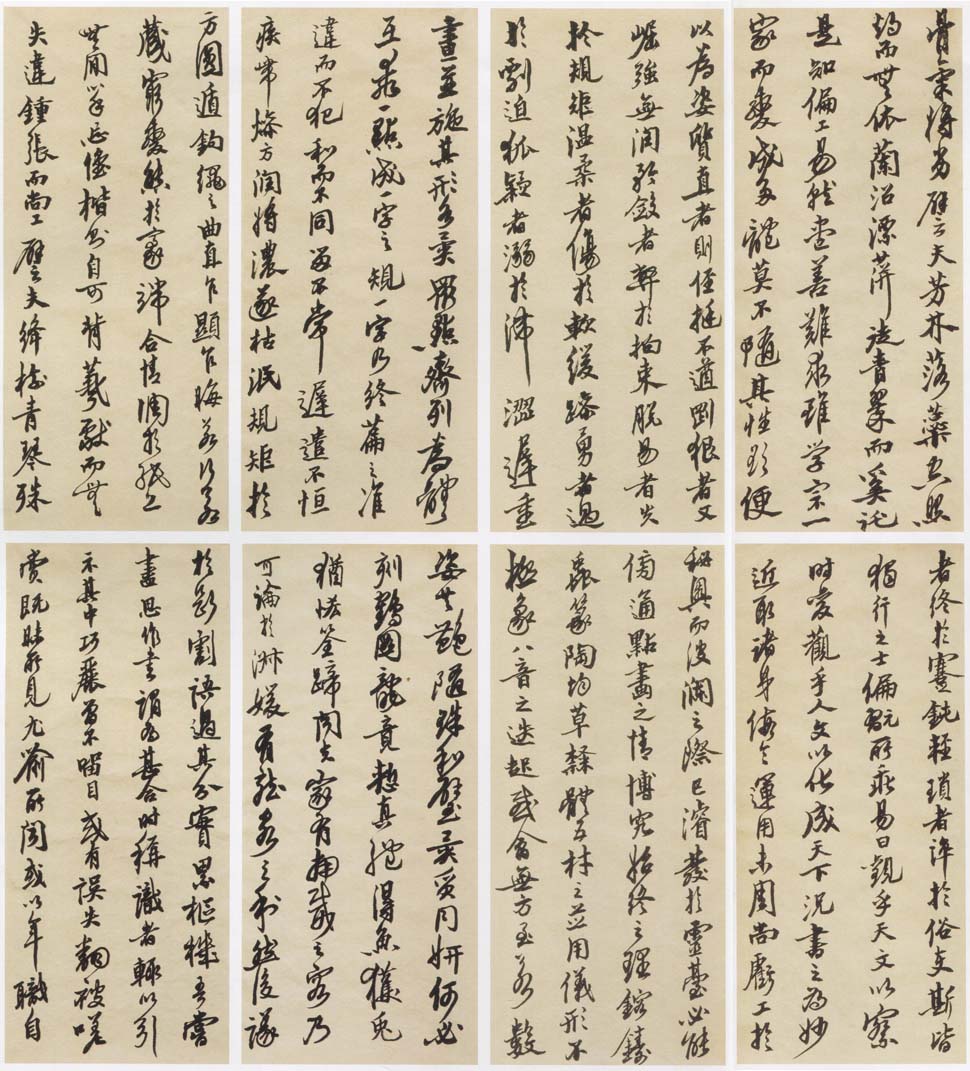 骨氣將劣譬夫芳林落蘂空照
灼而無依蘭沼漂萍徒青翠而奚託
是知偏工易就盡善難求雖學宗一
家而變成多體莫不隨其性欲便
以為姿質直者則俓挺不遒剛狠者又
崛強無潤矜斂者弊於拘束脫易者失
於規矩溫柔者傷於軟緩躁勇者過
於剽迫狐疑者溺於滯澀遲重
者終於蹇鈍輕瑣者淬於俗吏斯皆
獨行之士偏翫所乖易曰觀乎天文以察
時變觀乎人文以化成天下況書之為妙
近取諸身假令運用未周尚虧工於
秘奧而波瀾之際已濬發於靈臺必能
傍通點畫之情博究始終之理鎔鑄
蟲篆陶均草隸體五材之並用儀形不
極象八音之迭起感會無方至若數
畫並施其形各異眾點齊列為體
互乖一點成一字之規一字乃終篇之准
違而不犯和而不同留不常遲遣不恒
疾帶燥方潤將濃遂枯泯規矩於
方圓遁鉤繩之曲直乍顯乍晦若行若
藏窮變態於豪端合情調於紙上
無間心手忘懷楷則自可背羲獻而無
失違鍾張而尚工譬夫絳樹青琴殊
姿共艷隋珠和璧異質同妍何必
刻鶴圖龍竟慙真體得魚獲兔
猶恡筌蹄聞夫家有南威之容乃
可論於淑媛有龍泉之利然後議
於斷割語過其分實累樞機吾嘗
盡思作書謂為甚合時稱識者輒以引
示其中巧麗曾不留目或有誤失翻被嗟
賞既昧所見尤喻所聞或以年職自